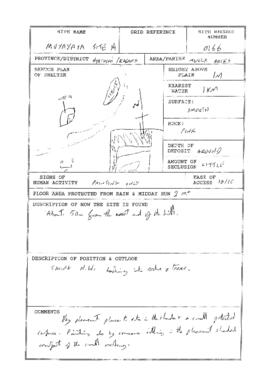 SITE NAME
GRID REFERENCE
SITE RECORD NUMBER
SITE A
0166
PROVINCE/DISTRICT
AREA/PARISH
SKETCH PLAN OF SHELTER
HEIGHT ABOVE PLAIN 1M
NEAREST WATER 1KM
SURFACE:
SMOOTH
ROCK:
PINK
DEPTH OF DEPOSIT GROUND
AMOUNT OF SECLUSION LITTLE
SIGNS OF HUMAN ACTIVITY PAINTINGS ONLY
EASE OF ACCESS 10/10
FLOOR AREA PROTECTED FROM RAIN & MIDDAY SUN 2 M²
DESCRIPTION OF HOW THE SITE IS FOUND
About 50m from the west end of the hill.
DESCRIPTION OF POSITION & OUTLOOK
N.W. looking into rocks & trees.
COMMENTS
pleasant site in the shade & a small protected
surface. Painting done by someone sitting in the pleasant shaded
comfort of the small